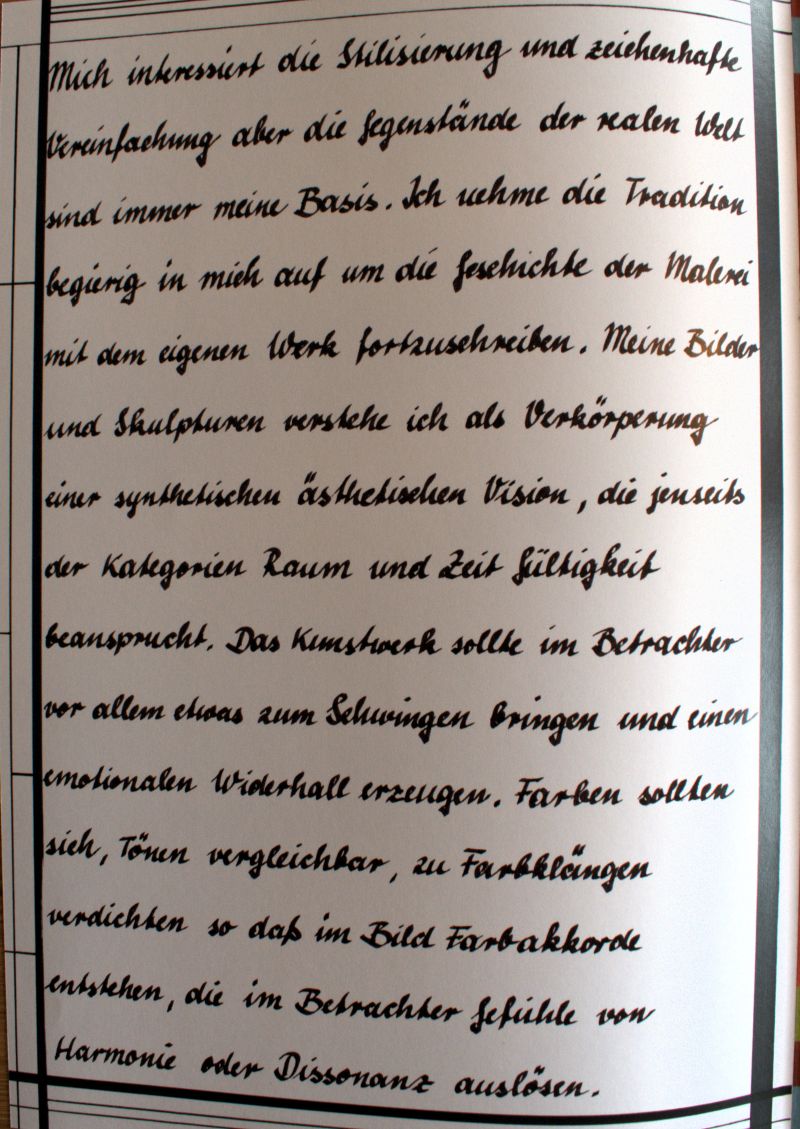 Mich interessiert die Stilisierung und zeichenhafte
Vereinfachung aber die Gegenstände der realen Welt
sind immer meine Basis. Ich nehme die Tradition
begierig in mich auf um die Geschichte der Malerei
mit dem eigenen Werk fortzuschreiben. Meine Bilder
und Skulpturen verstehe ich als Verkörperung
einer synthetischen ästhetischen Vision, die jenseits
der Kategorien Raum und Zeit Gültigkeit
beansprucht. Das Kunstwerk sollte im Betrachter
vor allem etwas zum Schwingen bringen und einen
emotionalen Widerhall erzeugen. Farben sollten
sich, Tönen vergleichbar, zu Farbklängen
verdichten so daß im Bild Farbakkorde
entstehen, die im Betrachter Gefühle von
Harmonie oder Dissonanz auslösen.